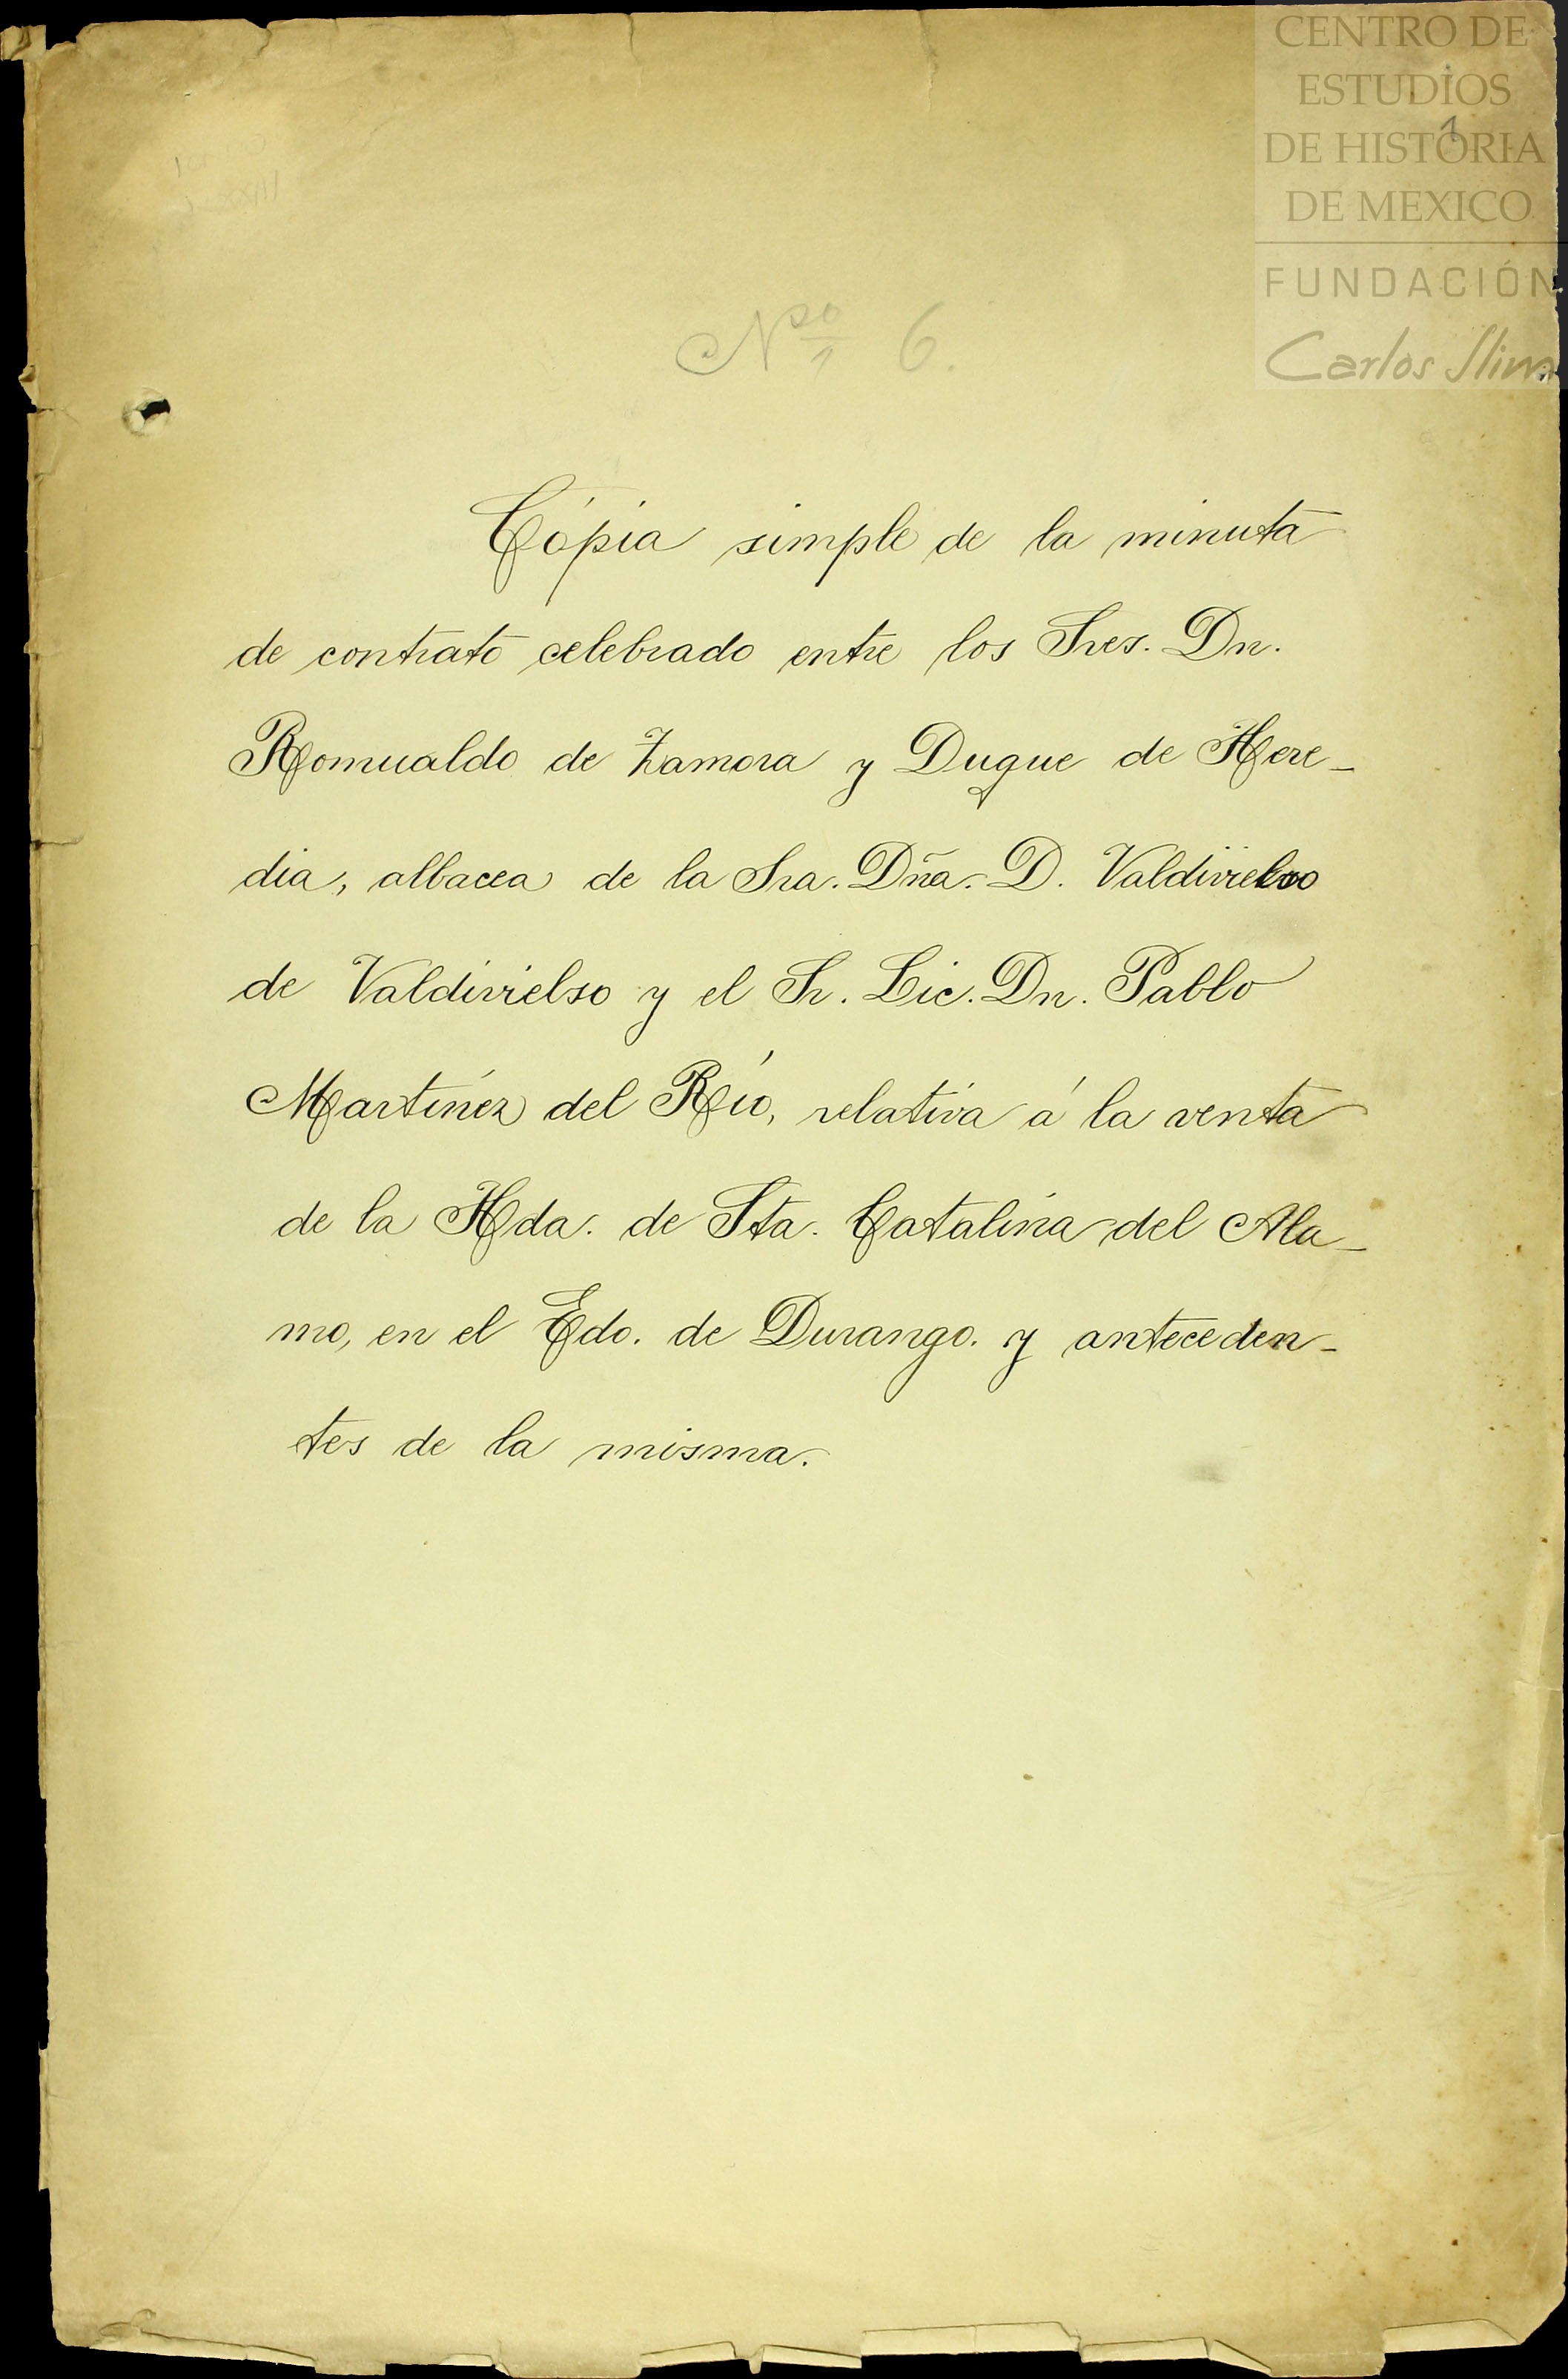 CENTRO DE
ESTUDIOS
DE HISTORIA
DE MEXICO
FUNDACIÓN
Carlos Slim
1
Nº 6.
Cópia simple de la minuta
de contrato celebrado entre los Sres. Dn.
Romualdo de Zamora y Duque de Here-
dia, albacea de la Sra. Dña. D. Valdivielso
de Valdivielso y el Sr. Lic. Dn. Pablo
Martínez del Río, relativa á la venta
de la Hda. de Sta. Catalina del Ala-
mo, en el Edo. de Durango. y anteceden-
tes de la misma.